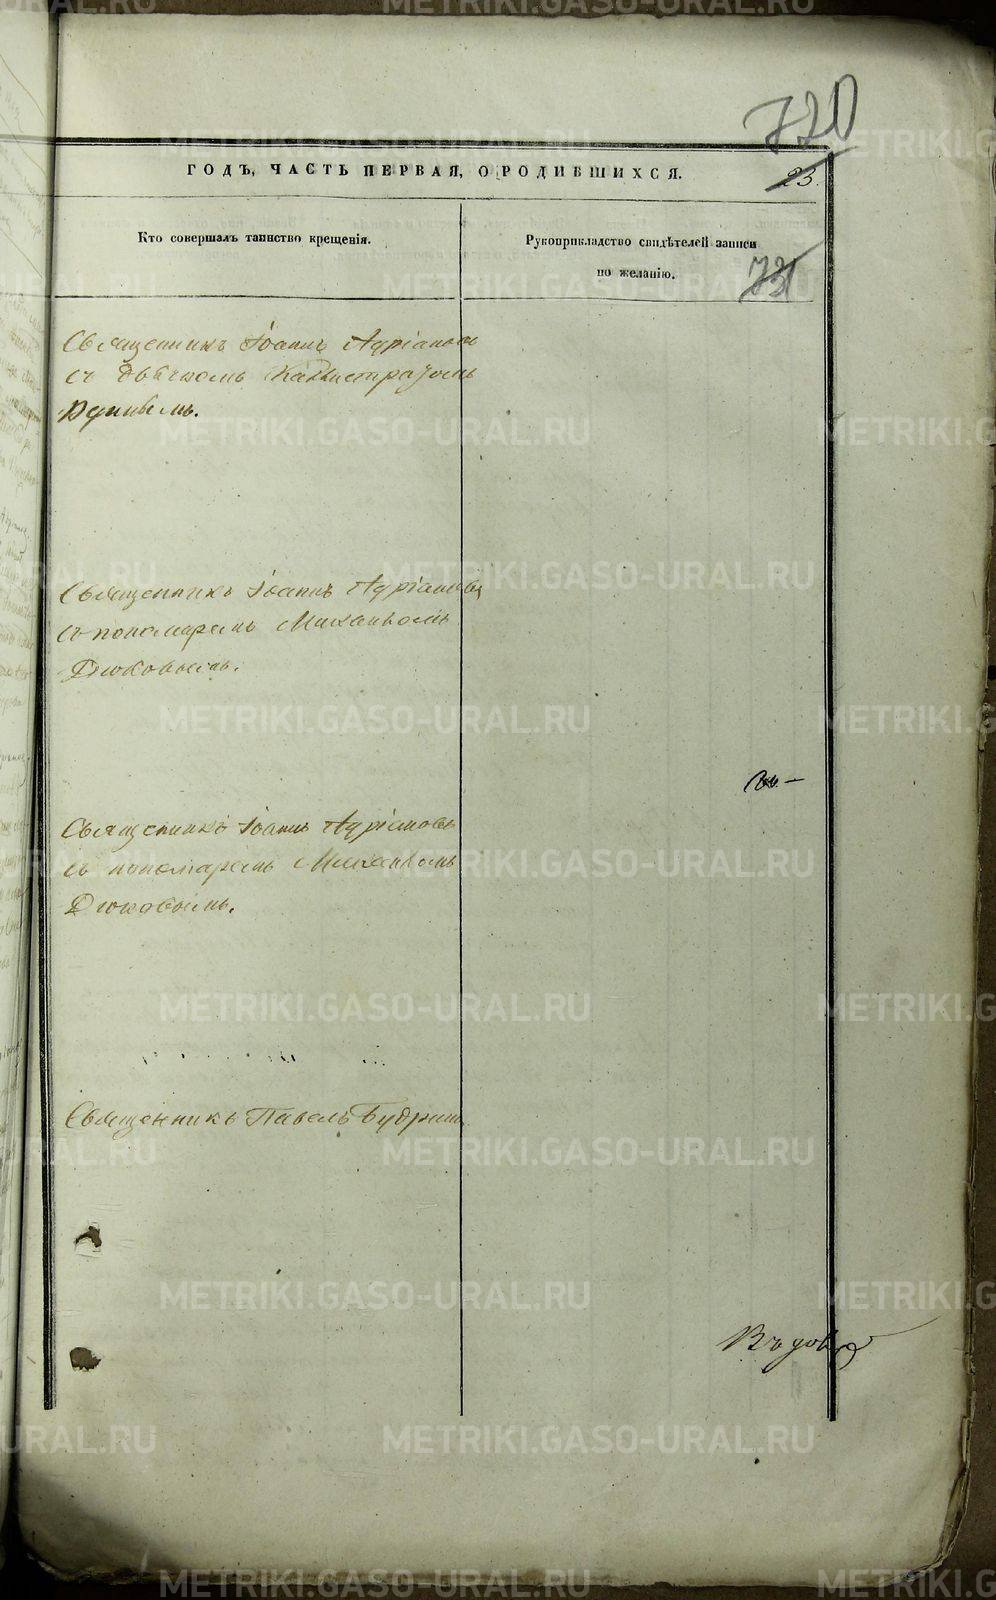 720
ГОДЪ, ЧАСТЬ ПЕРВАЯ, О РОДИВШИХСЯ.
23.
Кто совершалъ таинство крещенія.
Рукоприкладство свидѣтелей записи
по желанію.
731
Священникъ Іоаннъ Адріановъ
съ дьячкомъ
Священникъ Іоаннъ Адріановъ
съ пономаремъ Михаиломъ
Дюковымъ.
Священникъ Іоаннъ Адріановъ
съ пономаремъ Михаиломъ
Дюковымъ.
Священникъ Павелъ Будрин
METRIKI.GASO-URAL.RU